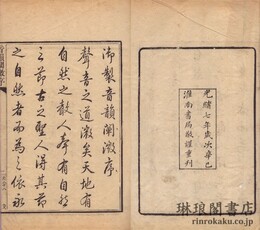 光緒七年歲次辛巳
淮南書局敬謹重刊
御製音韻闡微序
聲音之道微矣天地有
自然之聲人聲有自然
之節古之聖人得其節
之自然者而為之依永
琳琅閣書店
www.rinrokaku.com